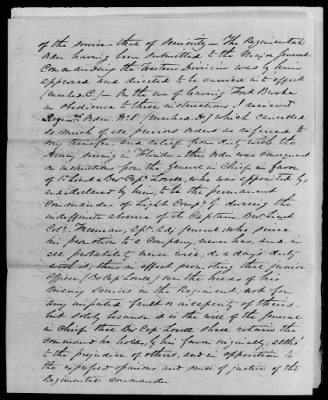 of the service - that of seniority - The Regimental
Order having been submitted to the Major General
Commanding the Western Division was by him
approved and directed to be carried into effect
(marked C.) - On the eve of leaving Fort Brooke
in obedience to these instructions I received
Regim'l Order No. (marked D.) which cancelled
so much of all previous orders as referred to
my transfer, and relief from duty with the
Army serving in Florida - this Order was consequent
on instructions from the General in Chief in favor
of 1st Lieut & Bvt Capt Lovell, who was appointed by,
and declared by him, to be the permanent
Commander of Light Comp'y G during the
indefinite absence of its Captain, Bvt Lieut
Col: Freeman, Ast. Adj. General, who, since
his promotion to a Company, never has, and in
all probability never will, do a day's duty
with it; thus in effect promoting this junior
officer, (Bvt Cap. Lovell,) over the heads of his
many Seniors in the Regiment, not for
any imputed fault or incapacity of theirs,
but solely because it is the will of the General
in Chief that Bvt Cap Lovell shall retain the
command he holds, by his favor originally, altho'
to the prejudice of others, and in opposition to
the expressed opinions and sense of justice of the
Regimental Commander